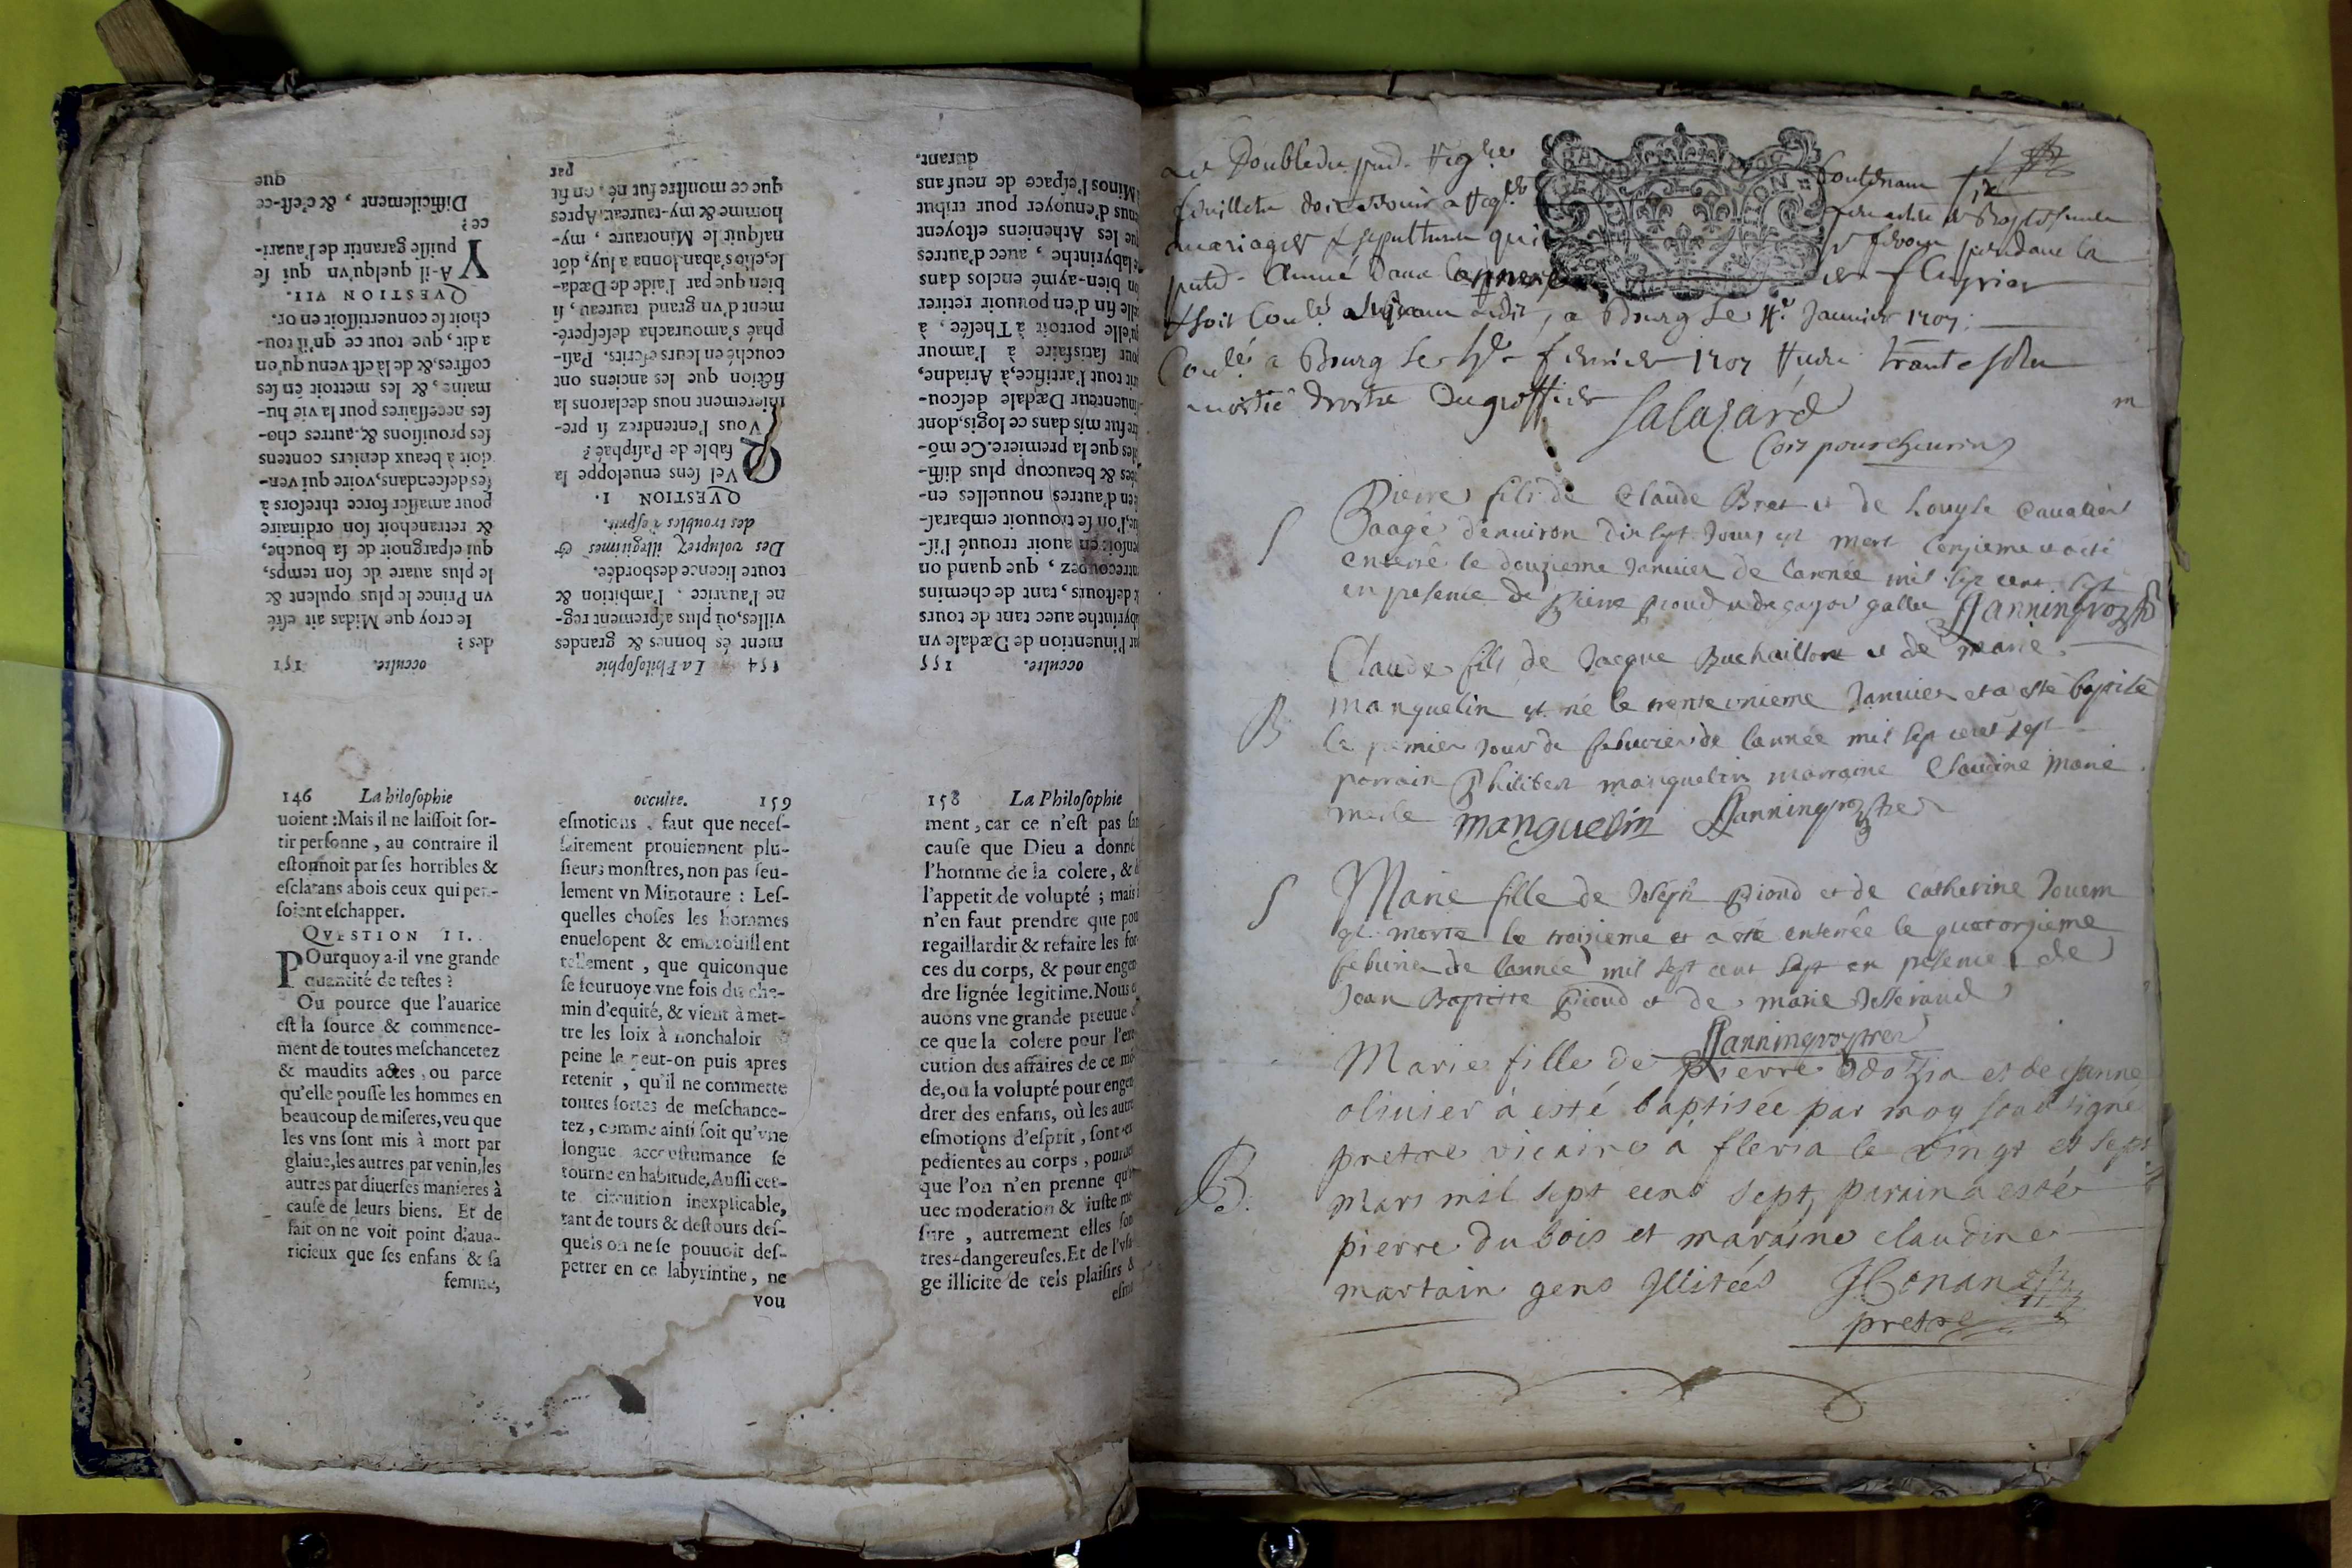 occulte. 151
des ?
Ie croy que Midas ait esté
vn Prince le plus opulent &
le plus auare de son temps,
qui espargnoit de sa bouche,
& retranchoit son ordinaire
pour amasser force thresors à
ses descendans, voire qui ven-
doit à beaux deniers contens
ses prouisions & autres cho-
ses necessaires pour la vie hu-
maine, & les mettoit en ses
coffres, & de là est venu qu'on
a dit, que tout ce qu'il tou-
choit se conuertissoit en or.
QVESTION VII.
Y A-il quelqu'vn qui se
puisse garantir de l'auari-
ce ?
Difficilement, & c'est-ce
que
154 La Philosophie
ment és bonnes & grandes
villes, où plus asprement reg-
ne l'auarice, l'ambition &
toute licence desbordée.
Des voluptez illegitimes &
des troubles d'esprit.
QVESTION I.
QVel sens enueloppe la
fable de Pasiphaé ?
Vous l'entendrez si pre-
mierement nous declarons la
fiction que les anciens ont
couché en leurs escrits. Pasi-
phaé s'amouracha desesperé-
ment d'vn grand taureau, si
bien que par l'aide de Dæda-
le, elle s'abandonna a luy, dót
nasquit le Minotaure, my-
homme & my-taureau. Apres
que ce monstre fut né, on fit
par
occulte. 155
l'inuention de Dædale vn
labyrinthe auec tant de tours
& destours, tant de chemins
entrecoupez, que quand on
pensoit en auoir trouué l'is-
sue, l'on se trouuoit embaras-
sé en d'autres nouuelles en-
trées & beaucoup plus diffi-
ciles que la premiere. Ce mó-
stre fut mis dans ce logis, dont
l'inuenteur Dædale descou-
urit tout l'artifice, à Ariadne,
pour satisfaire à l'amour
qu'elle portoit à Thesée, à
celle fin d'en pouuoir retirer
son bien-aymé enclos dans
le labyrinthe, auec d'autres
que les Atheniens estoyent
tenus d'enuoyer pour tribut
à Minos l'espace de neuf ans
durant.
146 La hilosophie
uoient : Mais il ne laissoit sor-
tir personne, au contraire il
estonnoit par ses horribles &
esclatans abois ceux qui pen-
soient eschapper.
QVESTION II.
POurquoy a-il vne grande
quantité de testes ?
Ou pource que l'auarice
est la source & commence-
ment de toutes meschancetez
& maudits actes, ou parce
qu'elle pousse les hommes en
beaucoup de miseres, veu que
les vns sont mis à mort par
glaiue, les autres par venin, les
autres par diuerses manieres à
cause de leurs biens. Et de
fait on ne voit point d'aua-
ricieux que ses enfans & sa
femme,
occulte. 159
esmotions, faut que neces-
sairement prouiennent plu-
sieurs monstres, non pas seu-
lement vn Minotaure : Les-
quelles choses les hommes
enuelopent & embrouillent
tellement, que quiconque
se fouruoye vne fois du che-
min d'equité, & vient à met-
tre les loix à nonchaloir
peine le peut-on puis apres
retenir, qu'il ne commette
toutes sortes de meschance-
tez, comme ainsi soit qu'vne
longue accoustumance se
tourne en habitude, Aussi cet-
te circuition inexplicable,
tant de tours & destours des-
quels on ne se pouuoit des-
petrer en ce labyrinthe, ne
vou
158 La Philosophie
ment, car ce n'est pas san
cause que Dieu a donné
l'homme de la colere, &
l'appetit de volupté ; mais
n'en faut prendre que pou
regaillardir & refaire les for
ces du corps, & pour engen
dre lignée legitime. Nous
auons vne grande preuue
ce que la colere pour l'exe
cution des affaires de ce mó
de, ou la volupté pour engen
drer des enfans, où les autre
esmotions d'esprit, sont ex
pedientes au corps, pource
que l'on n'en prenne qu'
uec moderation & iuste me
sure, autrement elles son
tres-dangereuses. Et de l'vsa
ge illicite de tels plaisirs &
esmo
Le Double du pnt. Regre Contenant six
feuillets doit servir a Regr de Baptesmes
mariages & sepultures qui se feront pendant la
pnte Année Dans la de fleyriat
a Bourg le Janvier 1707.
a Bourg le fevrier 1707 trante solz
moitié Droitz Du greffier
Salazard
Pierre fils de Claude Bret et de Louyse Cavalier
S aagé denuiron dix sept Jours est mort lonzieme a esté
enterré le douzieme Januier de lannée mil sept cent sept
en presence de Pierre Pioud
Claude fils de Jacque Buchaillon et de marie
manguelin est né le trente unieme Januier et a esté baptisé
B le premier Jour de februrier de lannée mil sept cent sept
parrain Philibert manguelin marraine Claudine Marie
merle manguelin Jannin
S Marie fille de Joseph Pioud et de catherine Jouem
est morte le troizieme et a esté enterrée le quatorzieme
februrier de lannée mil sept cent sept en presence de
Jean Baptiste Pioud et de marie
Jannin
Marie fille de pierre et de janne
oliuier à esté baptisée par moy soussigné
pretre vicaire à fleria le vingt et sept
B. mars mil sept cent sept, parain a esté
pierre du bois et maraine claudine
martain gens Jllitées JConan
pretre